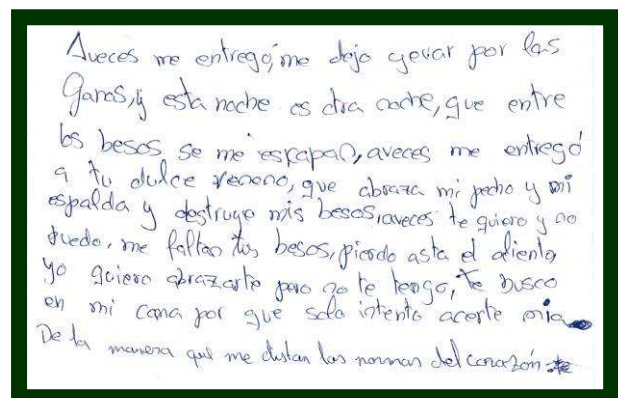 Aveces me entregó, me dejo yevar por las
Ganas, y esta noche es otra noche, que entre
los besos se me eskapan, aveces me entregó
a tu dulce veneno, que abraza mi pecho y mi
espalda y destruye mis besos, aveces te quiero y no
puedo, me faltan tus besos, pierdo asta el aliento,
yo quiero abrazarte pero no te tengo, te busco
en mi cama por que solo intento acerte mia
De la manera que me distan las normas del corazón.